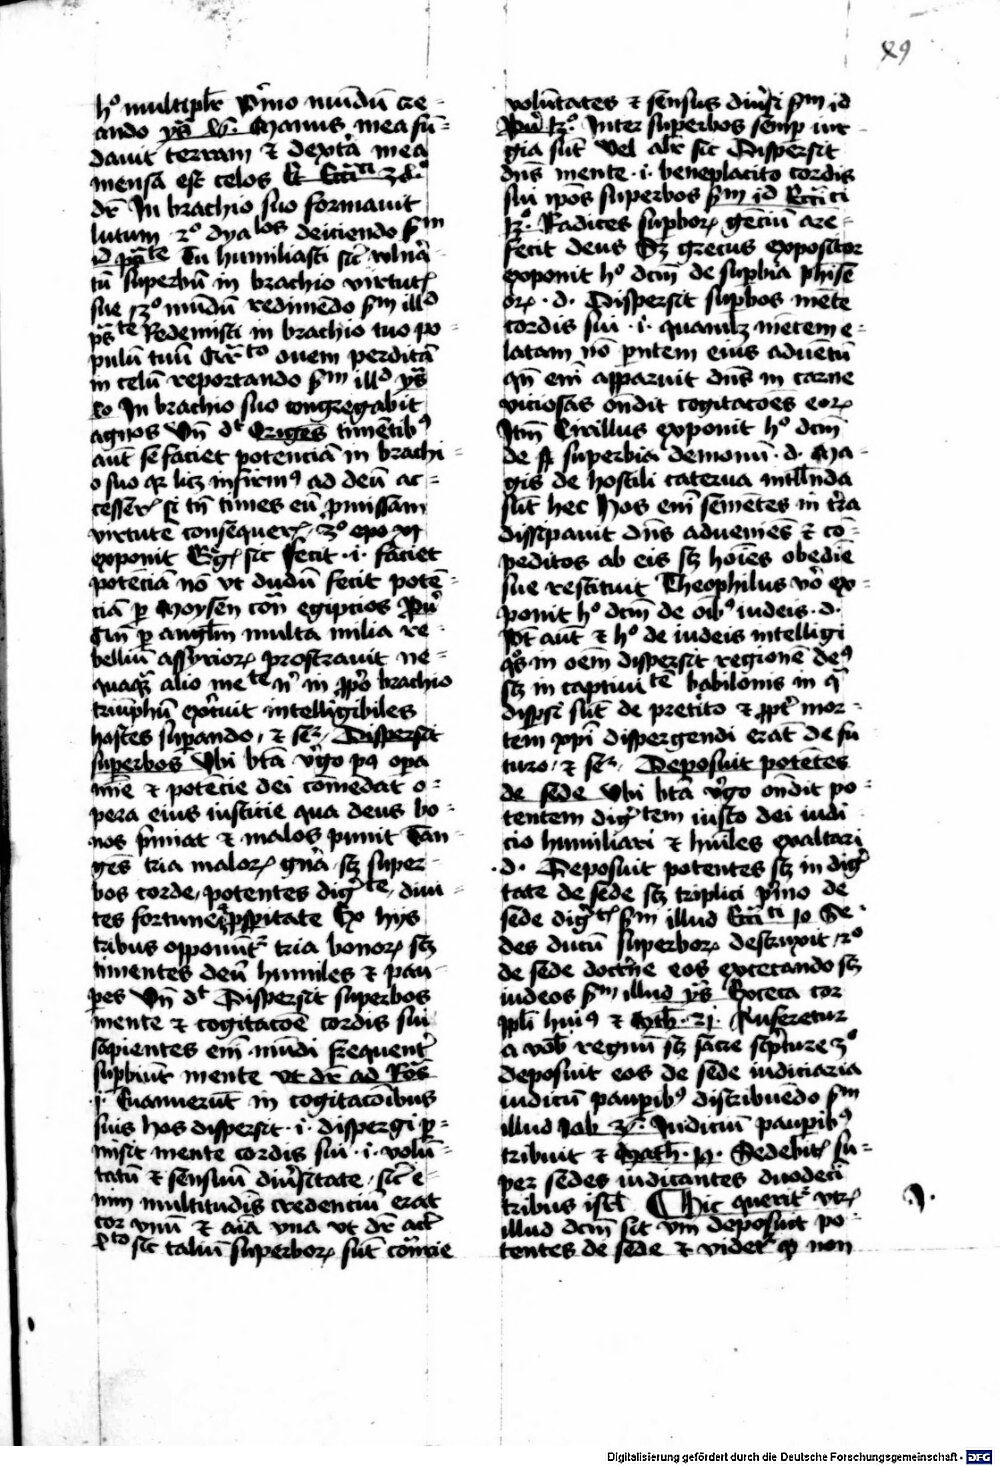 89
hº multiplr Pimo mūdū cre-
ando ys̄ Manus mea fū-
dauit terram ⁊ dextā mea
mensā est celos
dr̄ In brachio suo formauit
lutum 2º dyalos deiciendo sm
id ps̄te Tu humiliasti sic̄ vlnā-
tū superbū in brachio virtut
sue 3º mūdū redimēdo sm illd
ps̄te Redemisti in brachio tuo po-
pulū tuū ouem perditā
in celū reportando sm illd ys̄
In brachio suo congregabit
agnos Vn̄ dt Origēs timētibꝰ
aut se faciet potenciā in brachi-
o suo qr licꝫ infirmꝰ ad deū ac-
cesserꝭ si tn̄ times eū pmissam
virtutē consequerꝭ
exponit sic fecit ·i· faciet
potēciā nō vt dudū fecit potē-
ciā p Moysen cōtᵃ egiptios
p anglm multa milia re-
belliū assyrioꝝ prostrauit ne-
quaqꝫ alio in ꝓpᵒ brachio
triūphū intelligibiles
hostes supando ⁊ sec̄ Dispersit
superbos Vbi btā virgo pᵃ opa
mīe ⁊ potēcie dei cōmēdat o-
pera eius iusticie qua deus bo-
nos pmiat ⁊ malos punit Tan-
gēs tria maloꝝ gn̄a sꝫ super-
bos corde potentes digte, diui-
tes fortune ꝓspitate Ex hys
tribus opponūt tria bonoꝝ sꝫ
timentes deū humiles ⁊ pau-
pes Vn̄ dt Dispersit superbos
mente ⁊ cogitacōē cordis sui
sapientes em̄ mūdi frequent
supbiūt mente vt dr̄ ad Ros̄
·i· Euanuerūt in cogitacōibus
suis hos dispersit ·i· dispergi p-
misit mente cordis sui ·i· volū-
tatū ⁊ sensuū diusitate sic̄ e-
nim multitudīs credenciū erat
cor vnū ⁊ aīa vna vt dr̄ act
sic taliū superboꝝ sūt cōtrarie
volūtates ⁊ sensus diusi sm id
Inter superbos semp iur-
gia sūt Vel alr sic Dispersit
dns mente ·i· beneplacito cordis
sui ipōs superbos sm id Eccici
Radices supboꝝ genciū are-
fecit deus Sꝫ grecus expositor
exponit hº dcm de supbia phise-
oꝝ ·d· Dispersit supbos mēte
cordis sui ·i· mētem e-
latam nō pntem eius aduētū
qn̄ em̄ apparuit dn̄s in carne
viciosas ōndit cogitacōes eoꝝ
Itm Cirillus exponit hº dcm
de superbia demonū ·d· Ma-
gis de hostili caterua intllnda
sūt hec Hos em̄ semētes in tra
dissipauit dn̄s adueniēs ⁊ cō-
peditos ab eis sꝫ hoīes obedīe
sue restituit Theophilus vō ex-
ponit hº dcm de oībꝰ iudeis ·d·
Pt aut ⁊ hº de iudeis intelligi
qs in oēm dispersit regionē deꝰ
sꝫ in captiuitē babilonis in qᵃ
dispsi sūt de pretito ⁊ ꝓpt mor-
tem xpi dispergendi erāt de fu-
turo ⁊ sec̄ Deposuit potētes
de sede Vbi btā virgo ōndit po-
tentem digtem iusto dei iudi-
cio humiliari ⁊ huiles exaltari
·d· Deposuit potentes sꝫ in dig-
tate de sede sꝫ triplici pimo de
sede digtis sm illud Eccici 10 Se-
des ducū superboꝝ destruxit 2º
de sede doctne eos excecando sꝫ
iudeos sm illud ys̄ Exceca cor
ppli huiꝰ ⁊ Mth· 21· Auferetur
a vob regnū sꝫ sacre scpture 3º
deposuit eos de sede iudiciaria
iudiciū paupibꝰ distribuēdo sm
illud Iob Iudiciū paupibꝰ
tribuit ⁊ Math· Sedebitꝭ su-
per sedes iudicantes duodeci
tribus isrl Hic queritʳ vtꝝ
illud dcm sit vm deposuit po-
tentes de sede ⁊ videt qꝫ non
Digitalisierung gefördert durch die Deutsche Forschungsgemeinschaft - DFG